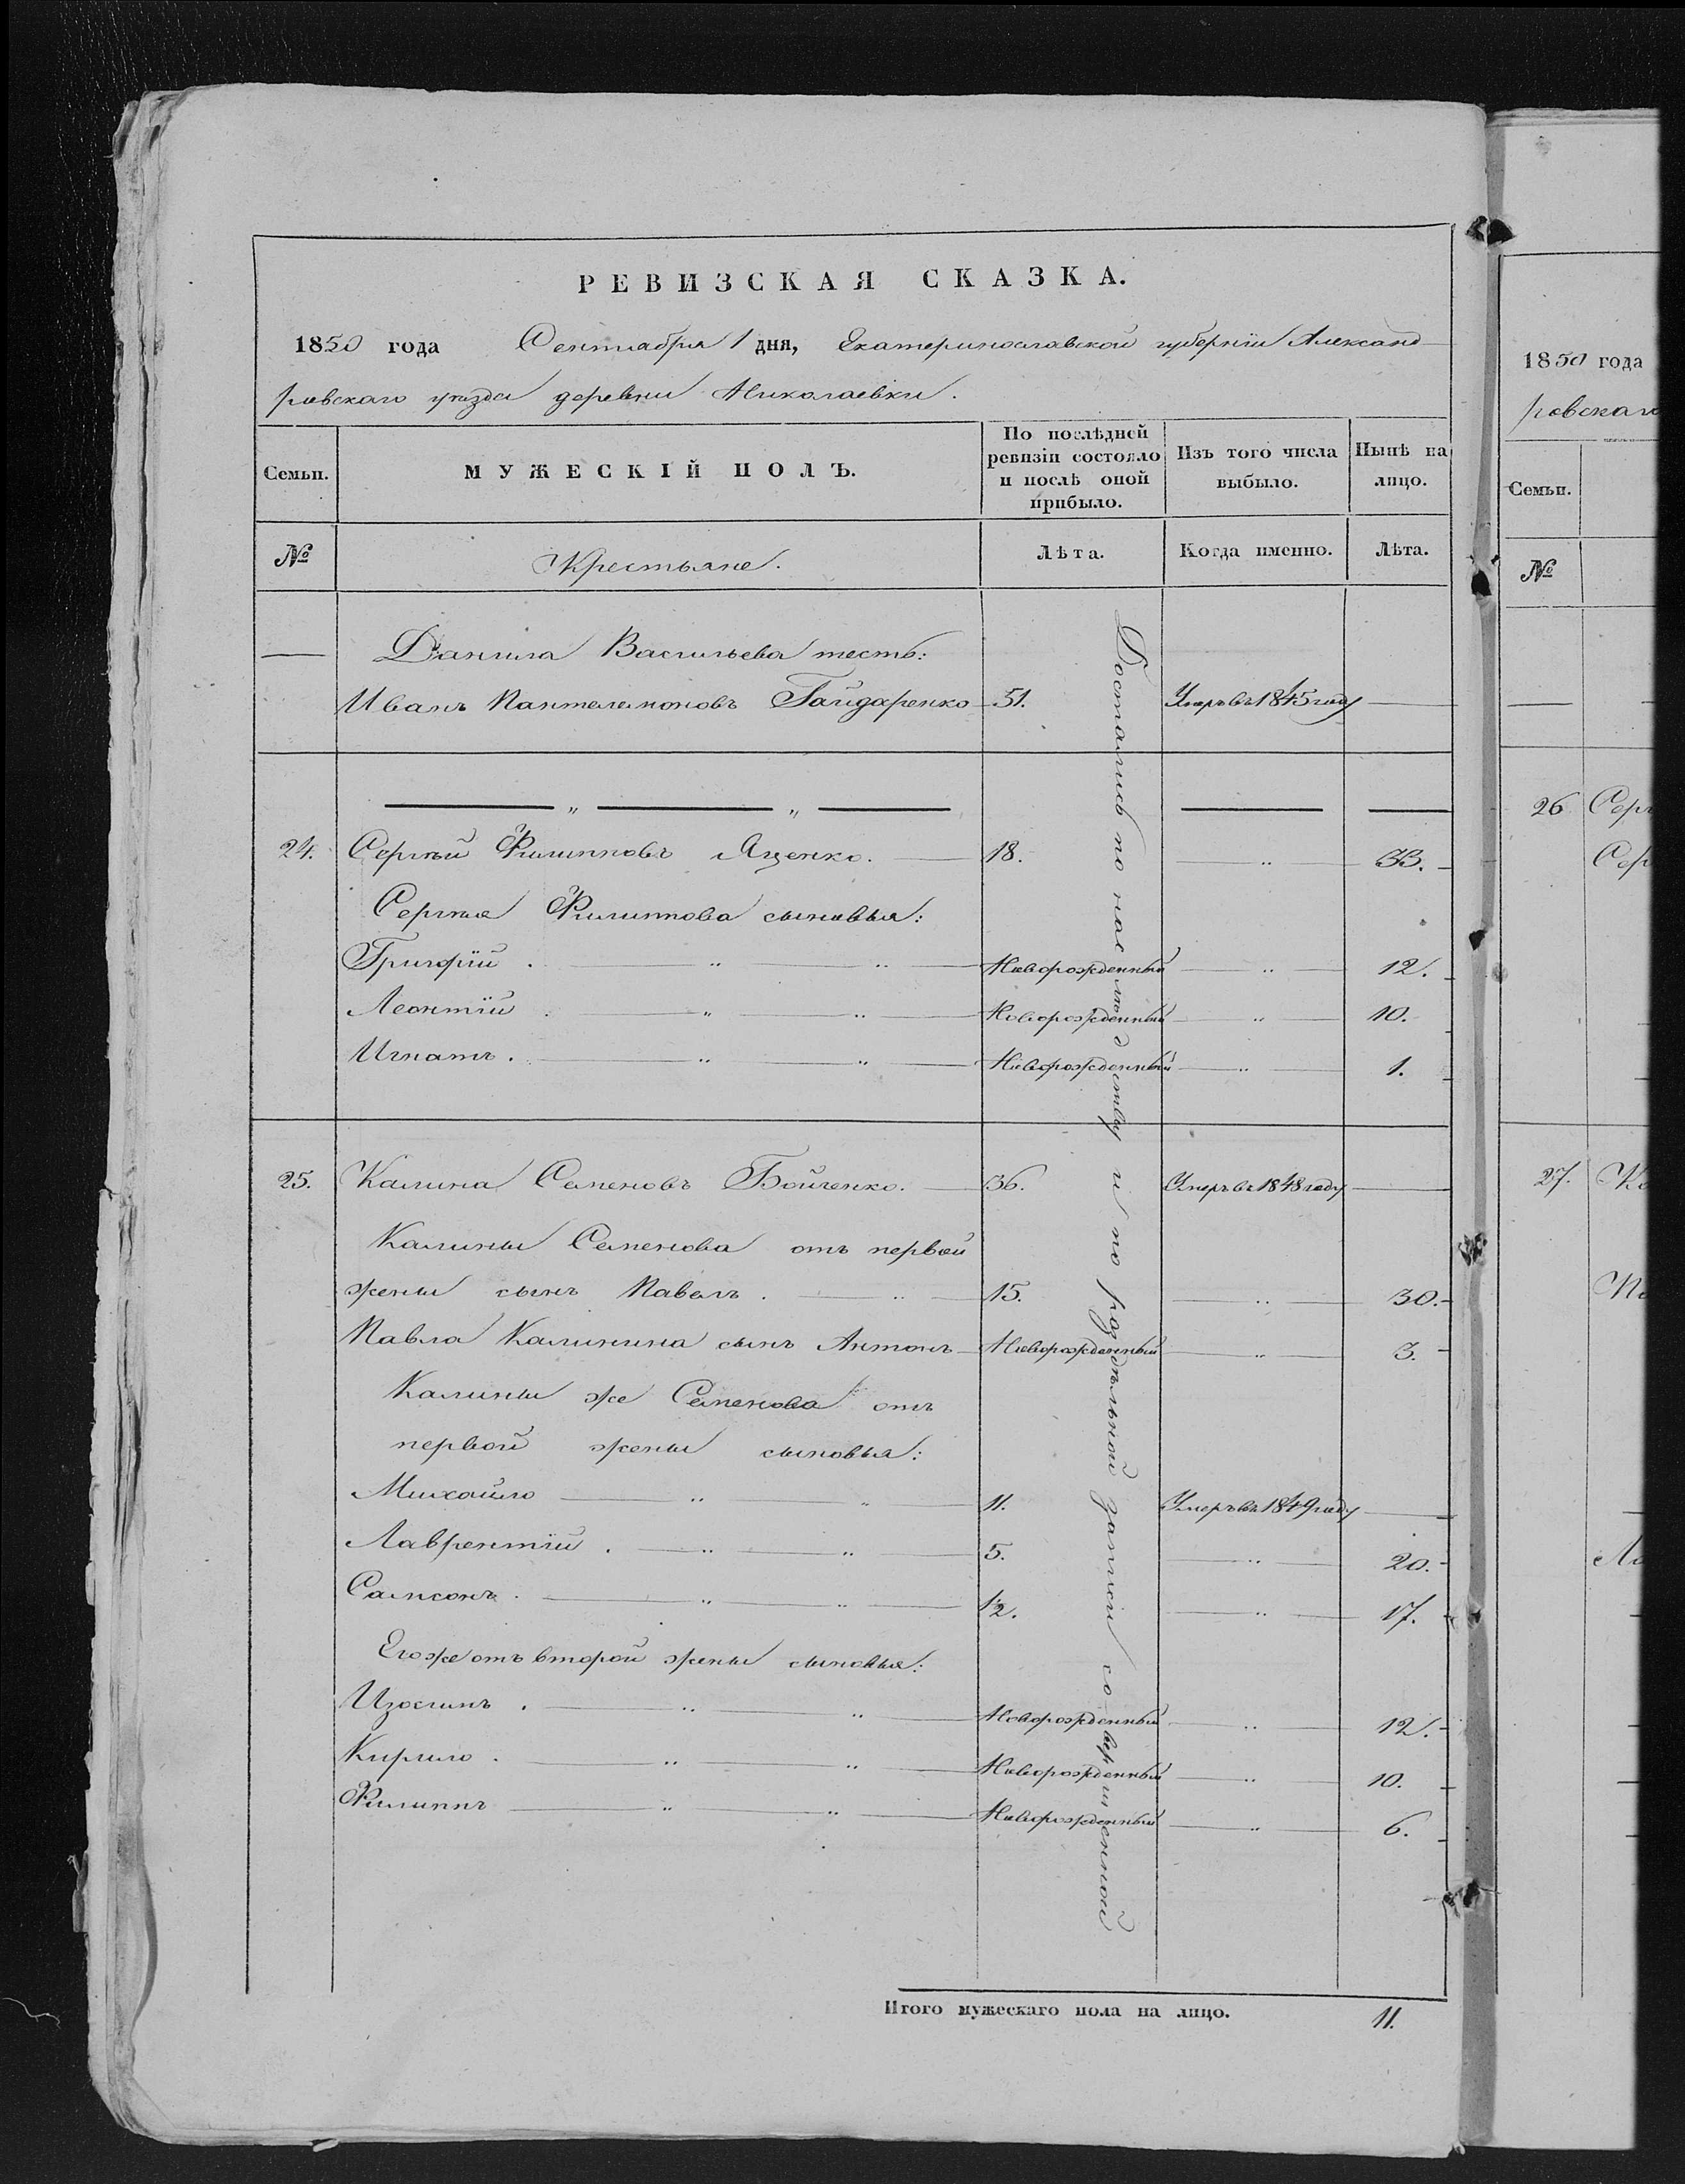 РЕВИЗСКАЯ СКАЗКА.
1850 года Сентября 1 дня, Екатеринославской губерніи Александ
ровскаго уѣзда деревни Николаевки.
Семьи. МУЖЕСКІЙ ПОЛЪ. По послѣдней ревизіи состояло и послѣ оной прибыло. Изъ того числа выбыло. Нынѣ на лицо.
№ Крестьяне. Лѣта. Когда именно. Лѣта.
Данила Васильева тесть:
Иванъ Пантелемоновъ Гайдаренко 51. Умеръ въ 1845 году
24. Сергѣй Филипповъ Яценко. 18. 33.
Сергѣя Филиппова сыновья:
Григорій . Новорожденный 12.
Леонтій . Новорожденный 10.
Игнатъ . Новорожденный 1.
25. Калина Семеновъ Бойченко. 36. Умеръ въ 1848 году
Калины Семенова отъ первой
жены сынъ Павелъ . 15. 30.
Павла Калинина сынъ Антонъ Новорожденный 3.
Калины же Семенова отъ
первой жены сыновья:
Михайло 11. Умеръ въ 1849 году
Лаврентій . 5. 20.
Самсонъ . 1/2. 17.
Его же отъ второй жены сыновья:
Изосимъ . Новорожденный 12.
Кирило . Новорожденный 10.
Филиппъ Новорожденный 6.
Достались по наслѣдству и по раздѣльной записи совершенной
Итого мужескаго пола на лицо. 11.
1850 года
ровскаго
Семьи.
№
26 Серг
Сер
27.